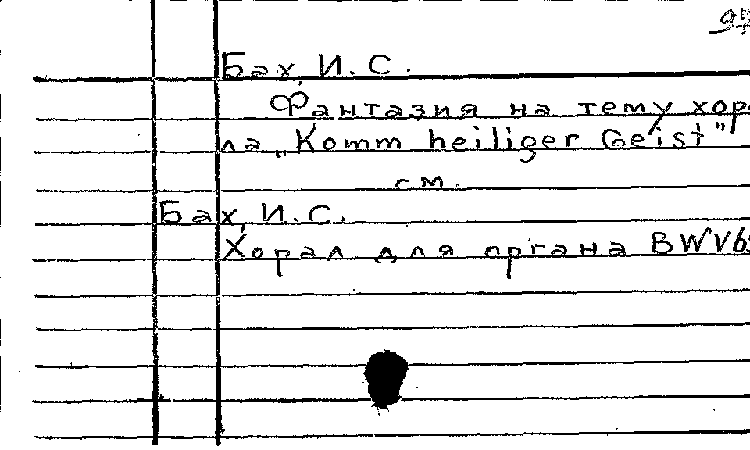 Бах, И. С.
Фантазия на тему хора
ла „Komm heiliger Geist"
см.
Бах, И. С.
Хорал для органа BWV